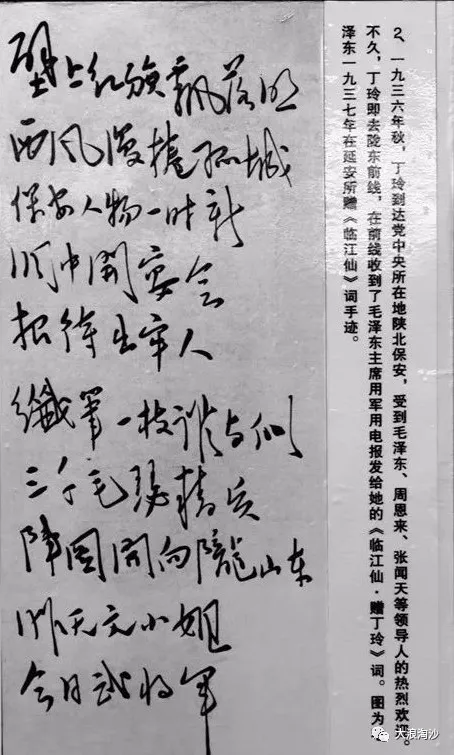 壁上红旗飘落照
西风漫捲孤城
保安人物一时新
洞中開宴会
招待出牢人
纖筆一枝誰与似
三千毛瑟精兵
陣圖開向隴山东
昨天文小姐
今日武将軍
2、一九三六年秋，丁玲到达党中央所在地陕北保安，受到毛泽东、周恩来、张闻天等领导人的热烈欢迎。
不久，丁玲即去陇东前线，在前线收到了毛泽东主席用军用电报发给她的《临江仙·赠丁玲》词。图为
泽东一九三七年在延安所赠《临江仙》词手迹。
大浪淘沙